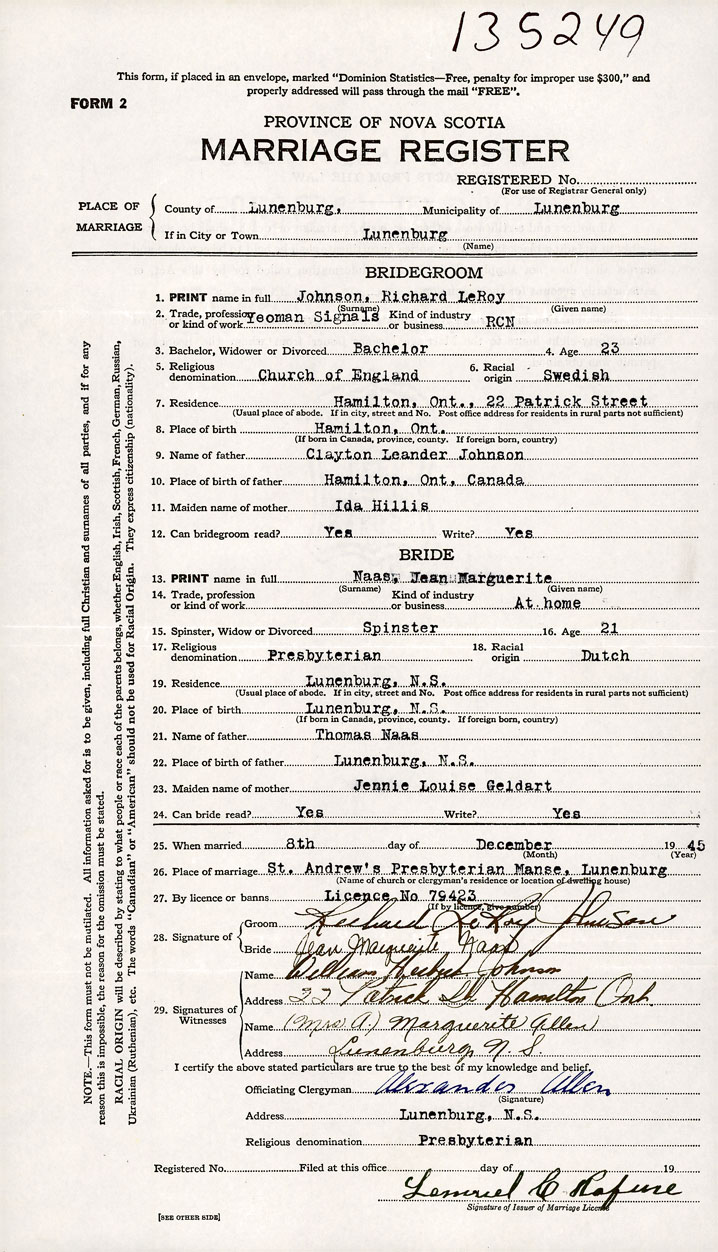 135249
This form, if placed in an envelope, marked "Dominion Statistics—Free, penalty for improper use $300," and
properly addressed will pass through the mail "FREE".
FORM 2
PROVINCE OF NOVA SCOTIA
MARRIAGE REGISTER
REGISTERED No.
(For use of Registrar General only)
PLACE OF MARRIAGE
County of Lunenburg, Municipality of Lunenburg
If in City or Town Lunenburg
(Name)
BRIDEGROOM
1. PRINT name in full Johnson, Richard LeRoy
(Surname) (Given name)
2. Trade, profession or kind of work Yeoman Signals Kind of industry or business RCN
3. Bachelor, Widower or Divorced Bachelor 4. Age 23
5. Religious denomination Church of England 6. Racial origin Swedish
7. Residence Hamilton, Ont., 22 Patrick Street
(Usual place of abode. If in city, street and No. Post office address for residents in rural parts not sufficient)
8. Place of birth Hamilton, Ont.
(If born in Canada, province, county. If foreign born, country)
9. Name of father Clayton Leander Johnson
10. Place of birth of father Hamilton, Ont, Canada
11. Maiden name of mother Ida Hillis
12. Can bridegroom read? Yes Write? Yes
BRIDE
13. PRINT name in full Naas, Jean Marguerite
(Surname) (Given name)
14. Trade, profession or kind of work Kind of industry or business At home
15. Spinster, Widow or Divorced Spinster 16. Age 21
17. Religious denomination Presbyterian 18. Racial origin Dutch
19. Residence Lunenburg, N.S.
(Usual place of abode. If in city, street and No. Post office address for residents in rural parts not sufficient)
20. Place of birth Lunenburg, N.S.
(If born in Canada, province, county. If foreign born, country)
21. Name of father Thomas Naas
22. Place of birth of father Lunenburg, N.S.
23. Maiden name of mother Jennie Louise Geldart
24. Can bride read? Yes Write? Yes
25. When married 8th day of December 19 45
(Month) (Year)
26. Place of marriage St. Andrew's Presbyterian Manse, Lunenburg
(Name of church or clergyman's residence or location of dwelling house)
27. By licence or banns Licence No 79423
(If by licence, give number)
28. Signature of
Groom Richard LeRoy Johnson
Bride Jean Marguerite Naas
29. Signatures of Witnesses
Name William Johnson
Address 22 Patrick St. Hamilton Ont.
Name (Mrs A.) Marguerite Allen
Address Lunenburg, N.S.
I certify the above stated particulars are true to the best of my knowledge and belief.
Officiating Clergyman Alexander Allen
(Signature)
Address Lunenburg, N.S.
Religious denomination Presbyterian
Registered No. Filed at this office day of 19
Lemuel C.
Signature of Issuer of Marriage Licence
[SEE OTHER SIDE]
NOTE.—This form must not be mutilated. All information asked for is to be given, including full Christian and surnames of all parties, and if for any
reason this is impossible, the reason for the omission must be stated.
RACIAL ORIGIN will be described by stating to what people or race each of the parents belongs, whether English, Irish, Scottish, French, German, Russian,
Ukrainian (Ruthenian), etc. The words "Canadian" or "American" should not be used for Racial Origin. They express citizenship (nationality).